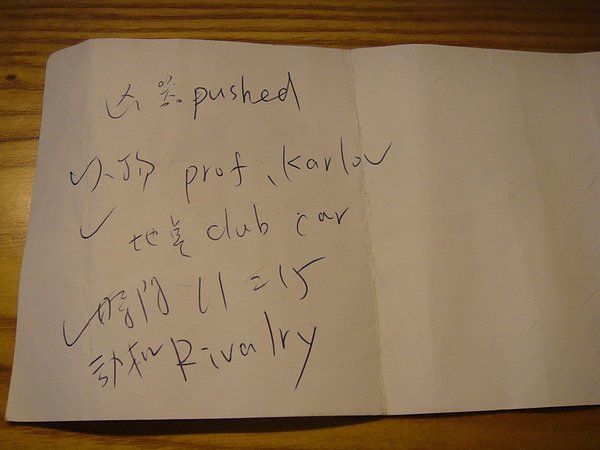 凶器 pushed
人物 prof. Karlov
地点 club car
時间 11:15
动机 Rivalry